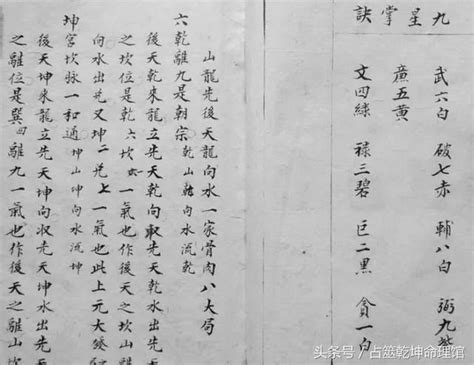 九星掌訣
武六白 破七赤 輔八白 弼九紫
廉五黃
文四綠 祿三碧 巨二黑 貪一白
山龍先後天龍向水一家骨肉八大局
六乾離九是朝宗 乾山乾向水流乾
後天乾來龍立先天乾向取先天乾
之坎位是乾六坎一氣也作後天之坎山
向水出先又坤二兌上一氣也此上元大發
坤宮坎脉一和通 坤山坤向水流坤
後天坤來龍立先天坤向收先天坤水出先天坤
之離位是巽四離九一氣也作後天之離山
头条号/占筮乾坤命理馆